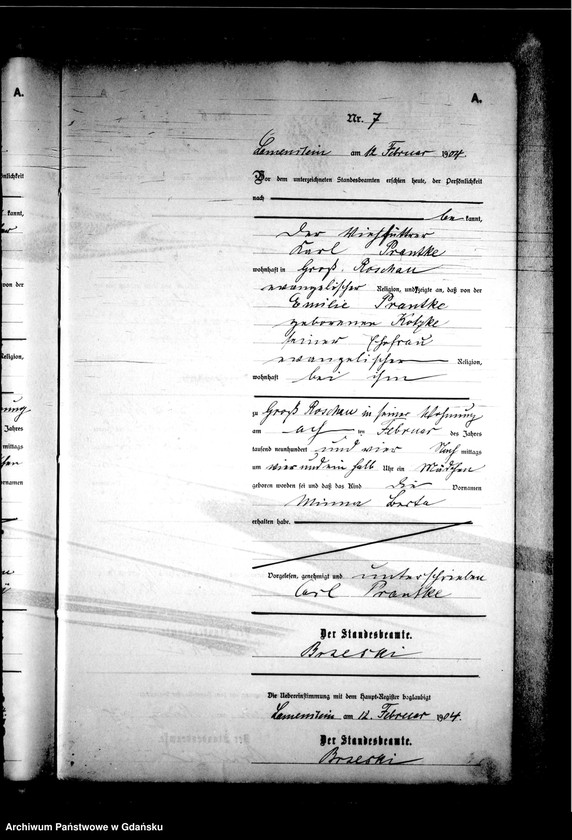 A.
A.
Nr. 7
Lamenstein am 12. Februar 1904.
Vor dem unterzeichneten Standesbeamten erschien heute, der Persönlichkeit
nach
be kannt,
der Viehfüttrer
Karl Prantke
wohnhaft in Groß Roschau
evangelischer Religion, und zeigte an, daß von der
Emilie Prantke
geborenen
seiner Ehefrau
evangelischer Religion,
wohnhaft bei ihm
zu Groß Roschau in seiner Wohnung
am ten Februar des Jahres
tausend neunhundert und vier Nach mittags
um vier und ein halb Uhr ein Mädchen
geboren worden sei und daß das Kind die Vornamen
Minna Berta
erhalten habe.
Vorgelesen, genehmigt und unterschrieben
Carl Prantke
Der Standesbeamte.
Brzeski
Die Uebereinstimmung mit dem Haupt-Register beglaubigt
Lamenstein am 12. Februar 1904.
Der Standesbeamte.
Brzeski
Archiwum Państwowe w Gdańsku